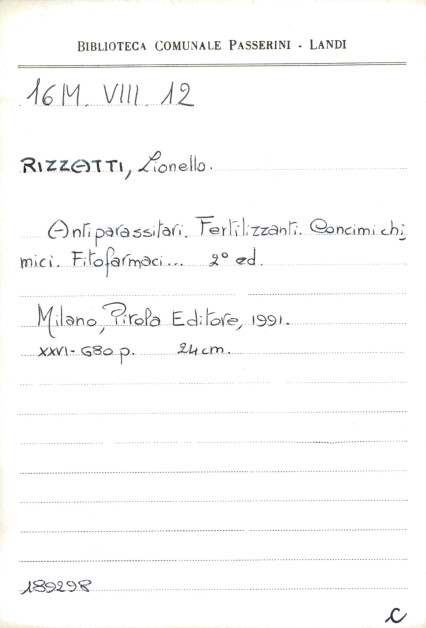 BIBLIOTECA COMUNALE PASSERINI - LANDI
16M. VIII. 12
RIZZATTI, Lionello.
Antiparassitari. Fertilizzanti. Concimi chi
mici. Fitofarmaci... 2° ed.
Milano, Pirola Editore, 1991.
XXVI-680 p. 24 cm.
189298
C